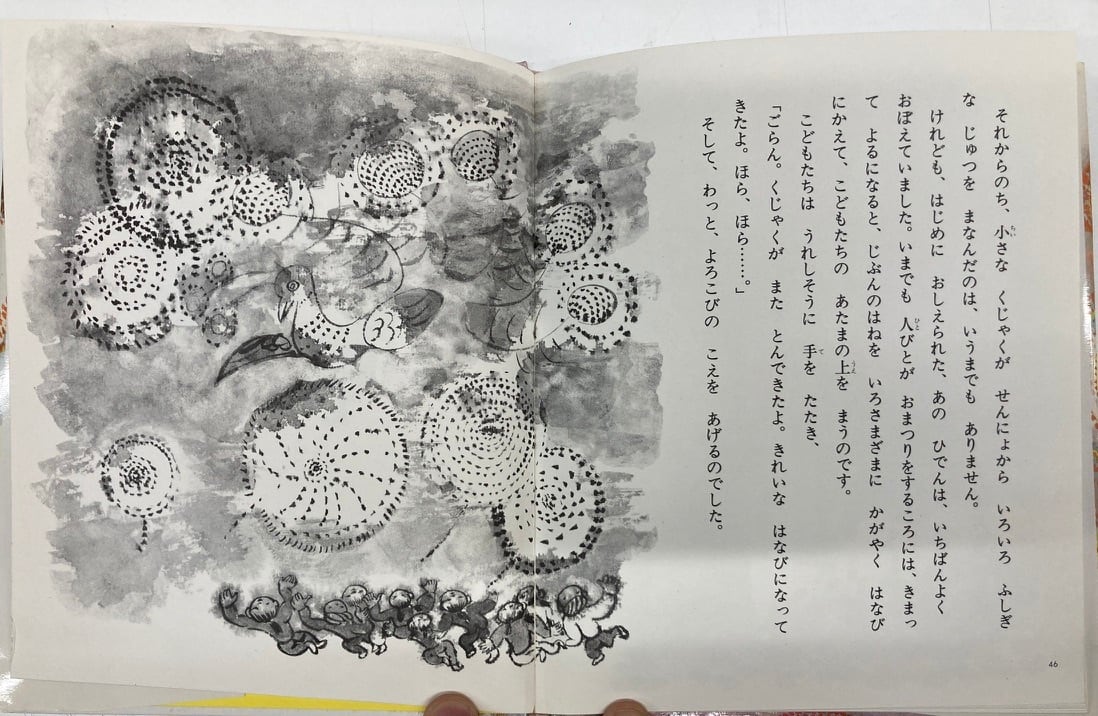 それからのち、小さな くじゃくが せんにょから いろいろ ふしぎ
な じゅつを まなんだのは、いうまでも ありません。
けれども、はじめに おしえられた、あの ひでんは、いちばんよく
おぼえていました。いまでも 人びとが おまつりをするころには、きまっ
て よるになると、じぶんのはねを いろさまざまに かがやく はなび
にかえて、こどもたちの あたまの上を まうのです。
こどもたちは うれしそうに 手を たたき、
「ごらん。くじゃくが また とんできたよ。きれいな はなびになって
きたよ。ほら、ほら……。」
そして、わっと、よろこびの こえを あげるのでした。
46